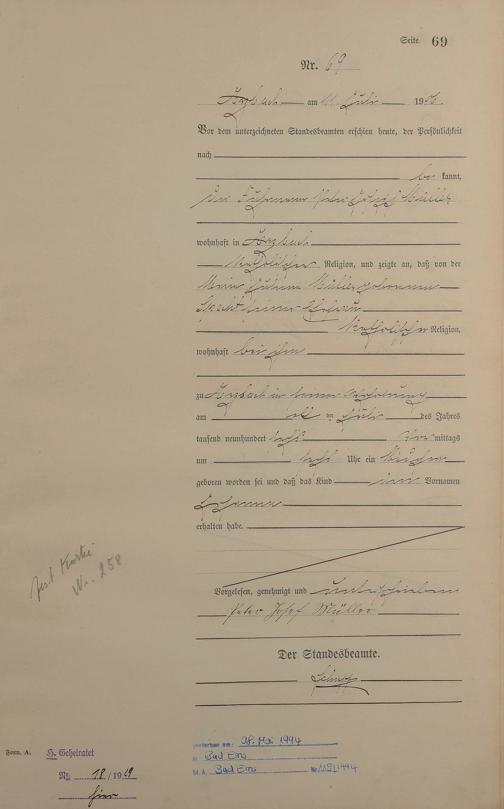 Seite 69
Nr. 69
Arzbach am 11. Juli 1906.
Vor dem unterzeichneten Standesbeamten erschien heute, der Persönlichkeit
nach
be kannt,
der Fuhrmann Peter Josef Müller
wohnhaft in Arzbach
katholischer Religion, und zeigte an, daß von der
Müller geborenen
seiner Ehefrau
katholischer Religion,
wohnhaft bei ihm
zu Arzbach in seiner Wohnung
am elf ten Juli des Jahres
tausend neunhundert sechs Vor mittags
um sechs Uhr ein Mädchen
geboren worden sei und daß das Kind den Vornamen
Johanna
erhalten habe.
Vorgelesen, genehmigt und unterschrieben
Peter Josef Müller
Der Standesbeamte.
Form. A.
H. Geheiratet
Nr. 18/1929
hier
Wr. 258
verstorben am: 08. Mai 1994
in Bad Ems
St. A. Bad Ems Nr. 115/1994